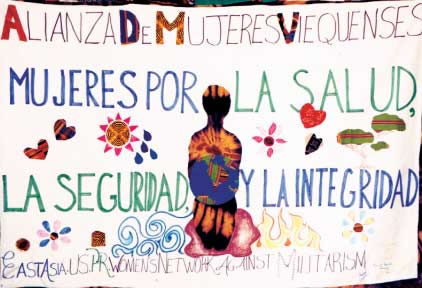 ALIANZA DE MUJERES VIEQUENSES
MUJERES POR LA SALUD,
LA SEGURIDAD, Y LA INTEGRIDAD
EAST ASIA-U.S.-PR WOMEN'S NETWORK AGAINST MILITARISM